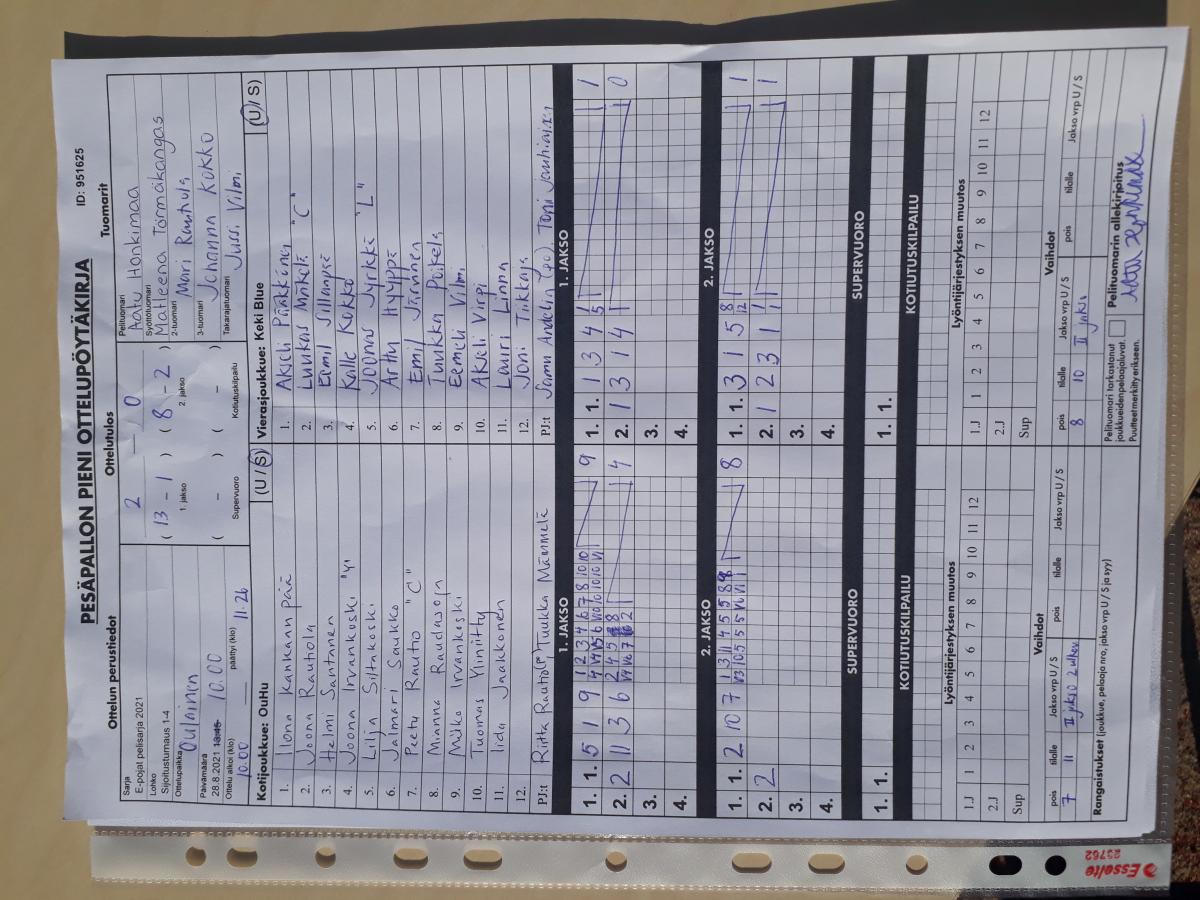 PESÄPALLON PIENI OTTELUPÖYTÄKIRJA
ID: 951625
Ottelun perustiedot
Ottelutulos
Tuomarit
Sarja
E-pojat pelisarja 2021
Lohko
Sijoitusturnaus 1-4
Ottelupaikka
Oulainen
Päivämäärä
28.8.2021 13:45 10.00
Ottelu alkoi (klo)
10.00
päättyi (klo)
11.26
2 - 0
( 13 - 1 ) ( 8 - 2 )
1. jakso
2. jakso
( - ) ( - )
Supervuoro
Kotiutuskilpailu
Pelituomari
Aatu Honkimaa
Syöttötuomari
Matleena Törmäkangas
2-tuomari
Mari Rautiola
3-tuomari
Johanna Kokko
Takarajatuomari
Jussi Vilmi
Kotijoukkue: OuHu
(U / S)
1. Ilona Kankaanpää
2. Joona Rautiola
3. Helmi Santanen
4. Joona Irvankoski "Y"
5. Lilja Siltakoski
6. Jalmari Saukko
7. Peetu Rautio "C"
8. Minna Raudasoja
9. Miko Irvankoski
10. Tuomas Yliniitty
11. Iida Jaakkonen
12.
PJ:t Riitta Rautio(P), Tuukka Männmelä
Vierasjoukkue: Keki Blue
(U / S)
1. Akseli Pääkkönen
2. Luukas Mäkelä "C"
3. Eemil Sillanpää
4. Kalle Kokko
5. Joonas Jyrkkä "L"
6. Arttu Hyyppä
7. Emil Järvinen
8. Tuukka Poikela
9. Eemeli Vilmi
10. Akseli Virpi
11. Lauri Linna
12. Joni Tiikkaja
PJ:t Samu Andelin (po), Toni Jauhiainen
1. JAKSO
1. JAKSO
1. 1. 5 1 9 1 2 3 4 6 7 8 10 10 9
2. 2 11 3 6 2 4 5 8 4
3.
4.
1. 1. 1 3 4 1 1
2. 1 3 1 4 1 0
3.
4.
2. JAKSO
2. JAKSO
1. 1. 2 10 7 1 3 11 4 5 5 8 9 8
2. 2
3.
4.
1. 1. 3 1 5 8 12 1
2. 1 2 3 1 1 1 1
3.
4.
SUPERVUORO
SUPERVUORO
1. 1.
1. 1.
KOTIUTUSKILPAILU
KOTIUTUSKILPAILU
Lyöntijärjestyksen muutos
Lyöntijärjestyksen muutos
1.J 1 2 3 4 5 6 7 8 9 10 11 12
2.J
Sup
1.J 1 2 3 4 5 6 7 8 9 10 11 12
2.J
Sup
Vaihdot
Vaihdot
pois tilalle Jakso vrp U / S pois tilalle Jakso vrp U / S
7 11 II jakso 2 ulkov
pois tilalle Jakso vrp U / S pois tilalle Jakso vrp U / S
8 10 II jakso
Rangaistukset (joukkue, pelaaja nro, jakso vrp U / S ja syy)
Pelituomari tarkastanut
joukkueidenpelaajaluvat.
Puutteet merkitty erikseen.
Pelituomarin allekirjoitus
Aatu Honkimaa
Esselte
25762